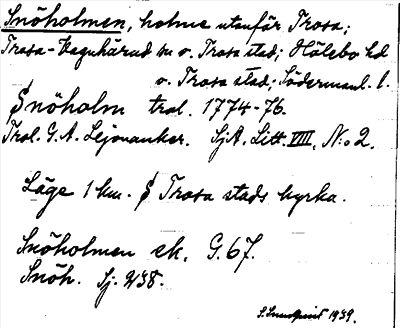 Snöholmen, holme utanför Trosa;
Trosa-Vagnhärad sn o. Trosa stad; Hölebo hd
o. Trosa stad; Södermanl. l.
Snöholm trol. 1774-76.
Trol. G. A. Lejonanker. SjA. Litt. VIII, N:o 2.
Läge 1 km. S Trosa stads kyrka.
Snöholmen ek. G. 67.
Snöh. Sj. 238.
1939.